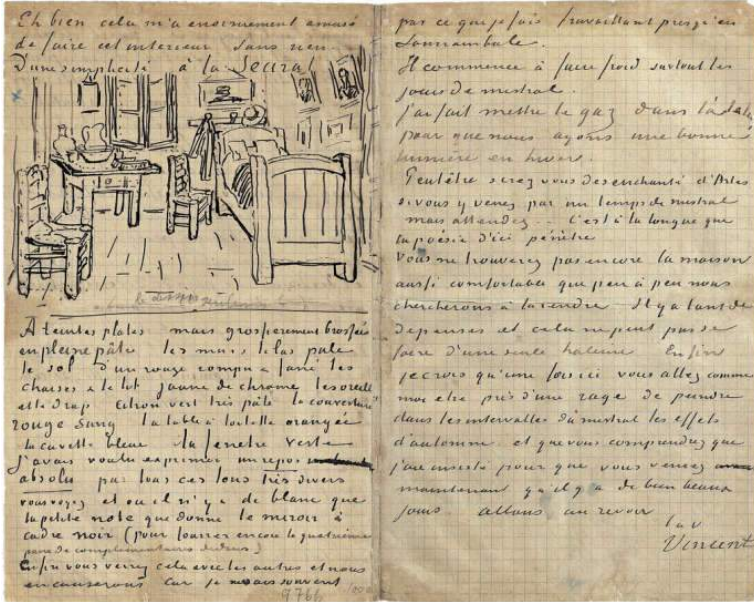 Eh bien cela m'a enormement amusé
de faire cet interieur sans rien.
D'une simplicité à la Seurat
A teintes plates mais grossierement brossées
en pleine pâte les murs lilas pale
le sol d'un rouge rompu & fané les
chaises & le lit jaune de chrome les oreillers
et le drap citron vert très pâle la couverture
rouge sang la table à toilette orangée
la cuvette bleue la fenetre verte
J'avais voulu exprimer un repos
absolu par tous ces tons très divers
vous voyez et où il n'y a de blanc que
la petite note que donne le miroir à
cadre noir (pour fourrer encore la quatrième
paire de complementaires dedans)
Enfin vous verrez cela avec les autres et nous
en causerons car je ne sais souvent
9766
pas ce que je fais travaillant presqu'en
somnambule.
Il commence à faire froid surtout les
jours de mistral.
j'ai fait mettre le gaz dans l'atelier
pour que nous ayons une bonne
lumière en hiver.
Peutêtre serez vous desenchanté d'Arles
si vous y venez par un temps de mistral
mais attendez .. C'est à la longue que
la poésie d'ici pénètre
Vous ne trouverez pas encore la maison
aussi confortable que peu à peu nous
chercherons à la rendre Il y a tant de
depenses et cela ne peut pas se
faire d'une seule haleine Enfin
je crois qu'une fois ici vous allez comme
moi etre pris d'une rage de peindre
dans les intervalles du mistral les effets
d'automne. et que vous comprendrez que
j'aie insisté pour que vous veniez
maintenant qu'il y a de bien beaux
jours. allons au revoir
t.a.v
Vincent